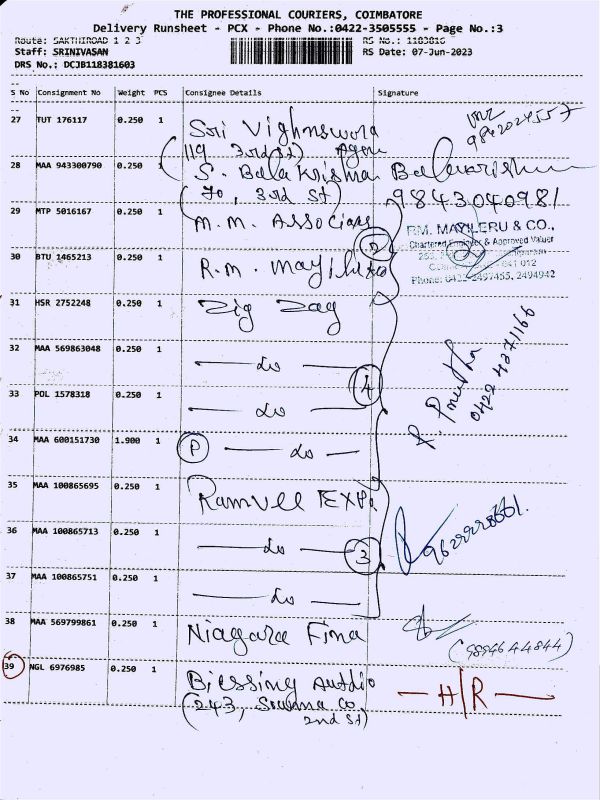 THE PROFESSIONAL COURIERS, COIMBATORE
Delivery Runsheet - PCX - Phone No.:0422-3505555 - Page No.:3
Route: SAKTHIROAD 1 2 3 RS No.: 1183816
Staff: SRINIVASAN RS Date: 07-Jun-2023
DRS No.: DCJB118381603
S No Consignment No Weight PCS Consignee Details Signature
27 TUT 176117 0.250 1 Sri Vighnswora
(119 3rd st) Agen
9842024557
28 MAA 943300790 0.250 1 S. Balakrishna
(70, 3rd st) 9843040981
29 MTP 5016167 0.250 1 M.M. Associaes
2
30 BTU 1465213 0.250 1 R.M.
& CO.,
Chartered Engineer & Approved Valuer
Phone: 0422-2497455, 2494942
31 HSR 2752248 0.250 1 Zig Zag
32 MAA 569863048 0.250 1 — do —
4
33 POL 1578318 0.250 1 — do —
0422 4371166
34 MAA 600151730 1.900 1 P — do —
35 MAA 100865695 0.250 1 Ramvee Exp.
36 MAA 100865713 0.250 1 — do —
3
37 MAA 100865751 0.250 1 — do —
38 MAA 569799861 0.250 1 Niagara Fina
(9894644844)
39 NGL 6976985 0.250 1 Blessing Autdio — H/R —
(243, 2nd st)